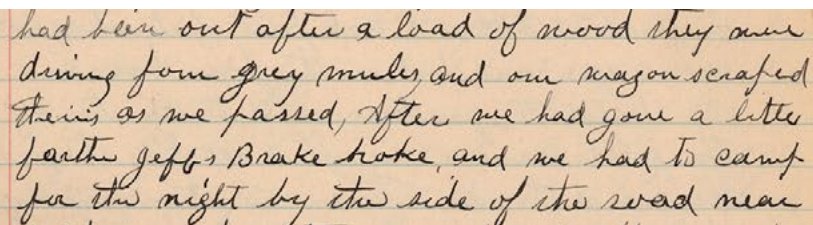 had been out after a load of wood they were
driving four grey mules, and our wagon scraped
theirs as we passed, After we had gone a little
farther Jeffs Brake broke, and we had to camp
for the night by the side of the road near